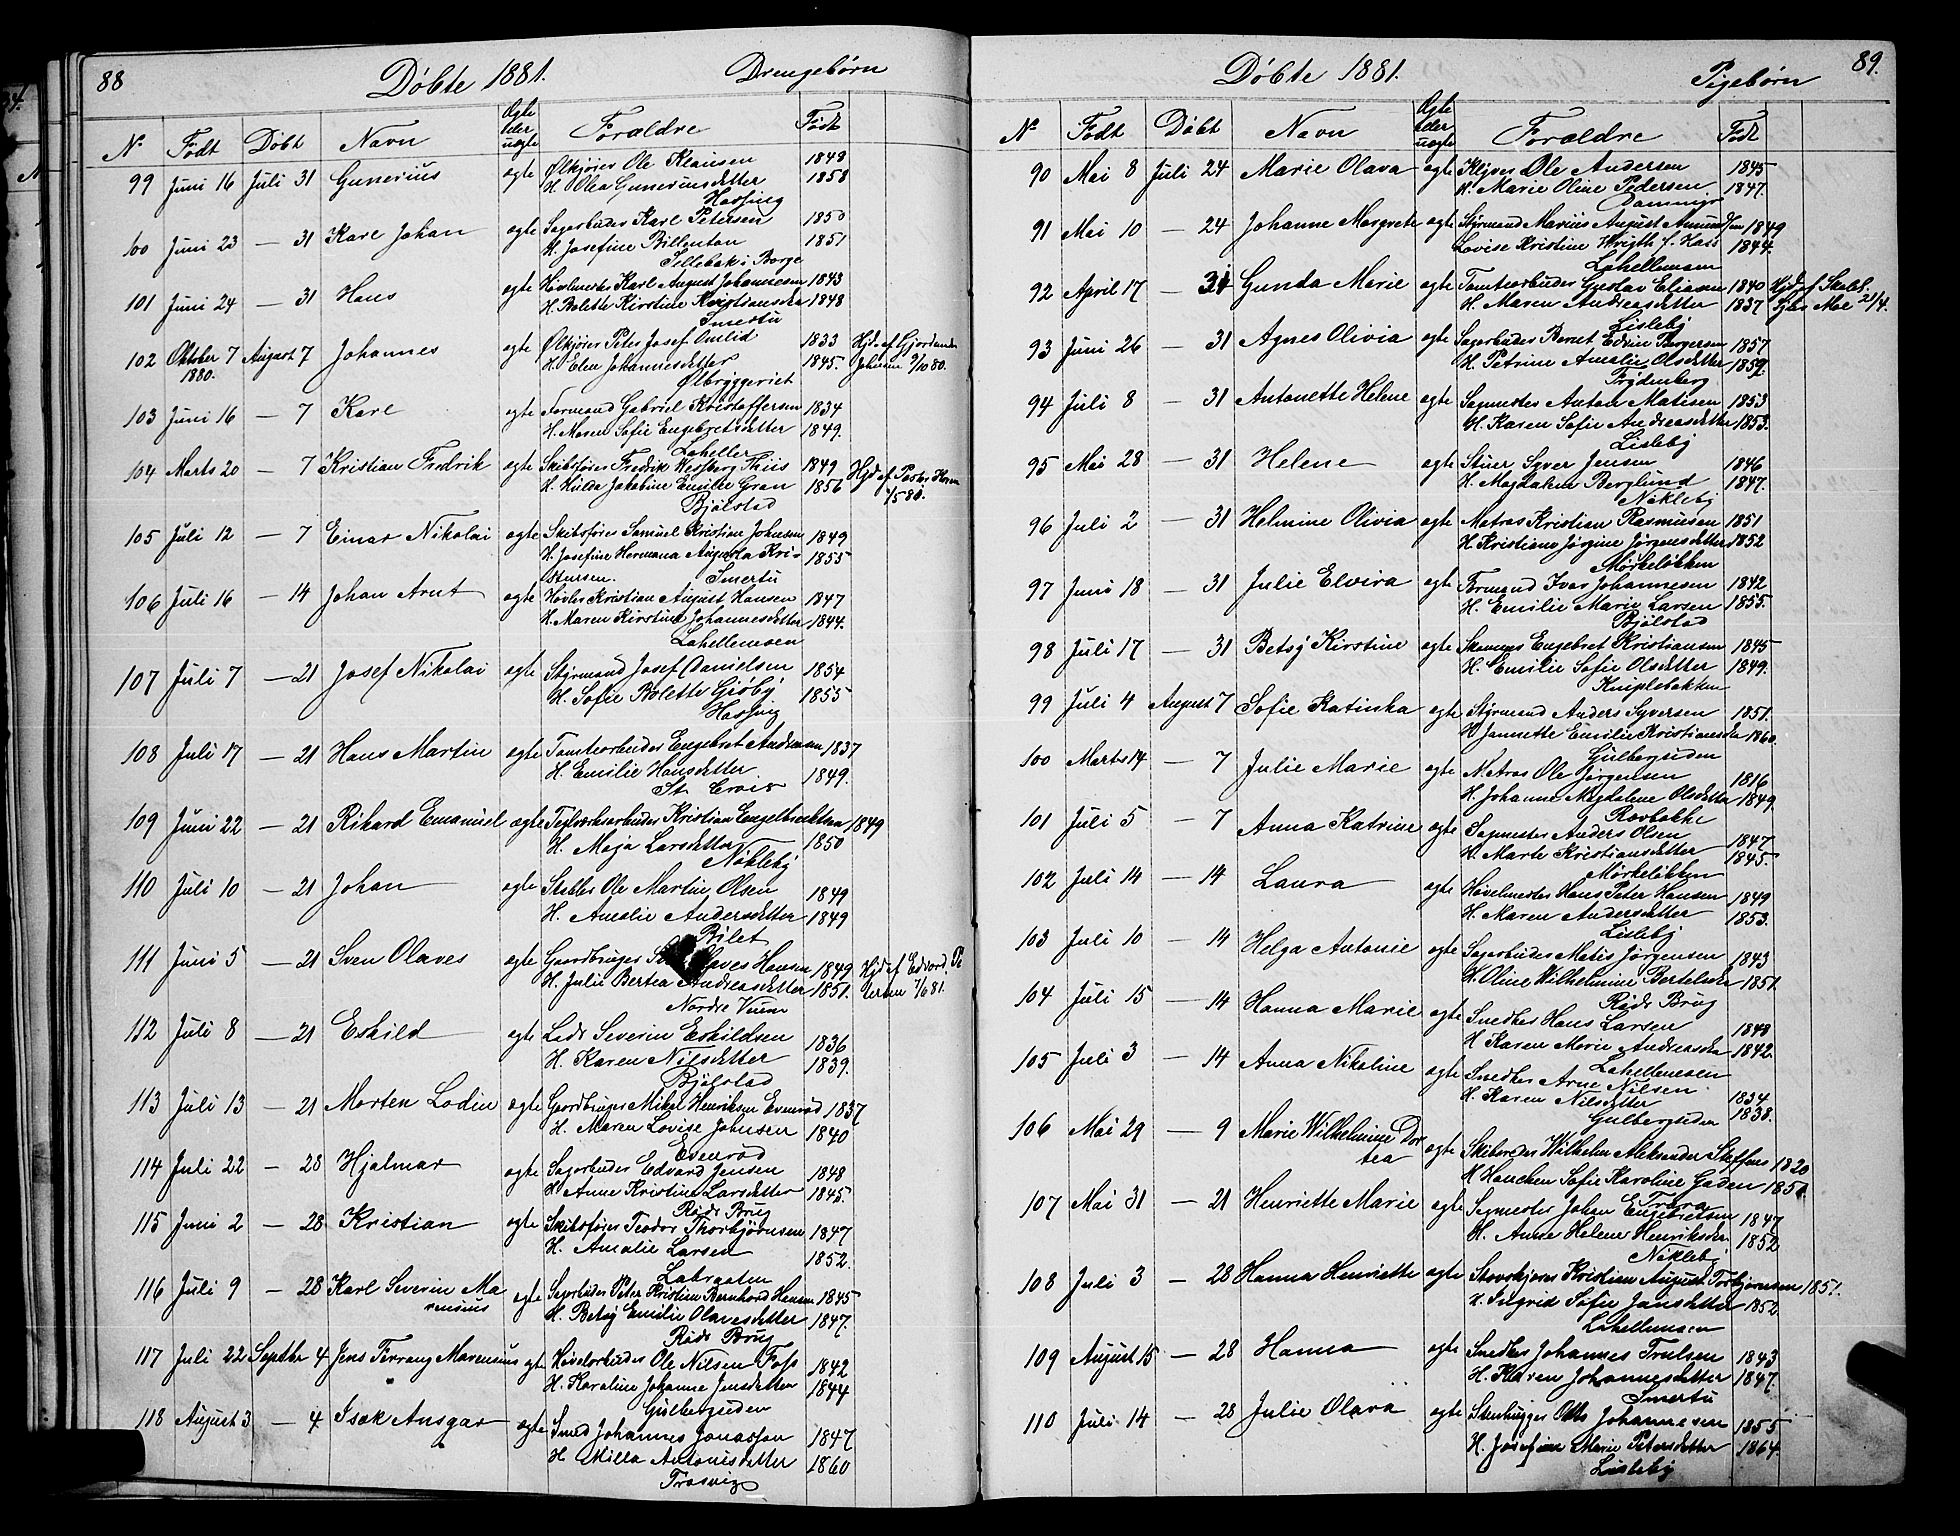 88 Döbte 1881. Drengebörn
No Födt Döbt Navn Ægte eller uægte Forældre Födt
99 Juni 16 Juli 31 Gunerius ægte Ølkjører Ole Klausen 1848
H. Olea Guneriusdatter 1858
Hassing
100 Juni 23 — 31 Karl Johan ægte Sagarbeider Karl Petersen 1850
H. Josefine Billentan 1851
Sellebak i Borge
101 Juni 24 — 31 Hans ægte Høvlmester Karl August Johannesen 1843
H. Bolette Kirstine Kristiansdtr 1848
Smertu
102 Oktober 7 August 7 Johannes ægte Ølkjører Peter Josef 1833 Hjd af Gjordemor
1880. H. Elen Johannesdatter 1845. Johnsen 9/10 80.
Ølbryggeriet
103 Juni 16 — 7 Karl ægte Formand Gabriel Kristoffersen 1834
H. Maren Sofie Engebretsdatter 1849.
Laheller
104 Marts 20 — 7 Kristian Fredrik ægte Skibsfører Fredrik Wessberg Thiis 1849 Hjd af Pastor Horn
H. Hulda Jakobine Emilie Gran 1856 1/5 81.
Bjølstad
105 Juli 12 — 7 Einar Nikolai ægte Skibsfører Samuel Kristian Johnsen 1849
H. Josefine Hermana Augusta Kri- 1855
stensen. Smertu
106 Juli 16 — 14 Johan Arnt ægte Høvler Kristian August Hansen 1847
H. Maren Kirstine Johannesdatter 1844.
Lahellemoen
107 Juli 7 — 21 Josef Nikolai ægte Styrmand Josef Danielsen 1854
H. Sofie Bolette Gröby 1855
Hassing
108 Juli 17 — 21 Hans Martin ægte Tomtearbeider Engebret Andersen 1837
H. Emilie Hansdatter 1849.
St. Croix
109 Juni 22 — 21 Rikard Emanuel ægte Teglværksarbeider Kristian Engelbrektsen 1849
H. Maja Larsdatter 1850
Nøkleby
110 Juli 10 — 21 Johan ægte Stabler Ole Martin Olsen 1849
H. Amalie Andersdatter 1849
Bilet
111 Juni 5 — 21 Sven Olaves ægte Gaardbruger Olaves Hansen 1849 Hjd af Edvard Pe
H. Julie Bertea Andreasdatter 1851. tersen 7/6 81.
Nordre Veum
112 Juli 8 — 21 Eskild ægte Lods Severin Eskildsen 1836
H. Karen Nilsdatter 1839.
Bjølstad
113 Juli 13 — 21 Morten Lodin ægte Gaardbruger Mikal Henriksen Evenrød 1837
H. Maren Lovise Johnsen 1840
Evenrød
114 Juli 22 — 28 Hjalmar ægte Sagarbeider Edvard Jensen 1848
H. Anne Kristine Larsdatter 1845.
Røds Brug
115 Juni 2 — 28 Kristian ægte Skibsfører Teodor Thorbjørnsen 1847
H. Amalie Larsen 1852.
Labrogaten
116 Juli 9 — 28 Karl Severin Ma- ægte Sagarbeider Peter Kristian Bernhard Hansen 1845
rensius H. Betsy Emilie Olavesdatter 1847.
Røds Brug
117 Juli 22 Septbr 4 Jens Ferrang Marensius ægte Høvlarbeider Ole Nilsen Foss 1842
H. Karoline Johanne Jensdatter 1844
Gulbergsiden
118 August 3 — 4 Isak Ansgar ægte Smed Johannes Jonassen 1847
H Milla Antonisdatter 1860
Trosvig
Döbte 1881. Pigebörn 89.
No Födt Döbt Navn Ægte eller uægte Forældre Födt
90 Mai 8 Juli 24 Marie Olava ægte Klyver Ole Andersen 1845
H. Marie Oline Pedersen 1847.
Dammyr
91 Mai 10 — 24 Johanne Margrete ægte Styrmand Marius August Amundsen 1849
Lovise Kristine Wrigth f. Hais 1844.
Lahellemoen
92 April 17 — 31 Gunda Marie ægte Tomtearbeider Gustav Eliasen 1840 Hjd af Skolel.
H. Maren Andreasdatter 1837 Moe 21/4.
Lisleby
93 Juni 26 — 31 Agnes Olivia ægte Sagarbeider Bernt Edvin Borgersen 1857
H. Petrine Amalie Olsdatter 1859.
Frydenberg
94 Juli 8 — 31 Antonette Helene ægte Sagmester Anton Matisen 1853
H. Karen Sofie Andreasdatter 1853.
Lisleby
95 Mai 28 — 31 Helene ægte Stuer Syver Jensen 1846
H. Magdalene Berglund 1847.
Nøkleby
96 Juli 2 — 31 Helmine Olivia ægte Matros Kristian Rasmussen 1851
H. Kristiane Jørgine Jørgensdatter 1852
Mørkeløkken
97 Juni 18 — 31 Julie Elvira ægte Formand Ivar Johannesen 1842
H. Emilie Marie Larsen 1855.
Bjølstad
98 Juli 17 — 31 Betsy Kirstine ægte Skomager Engebret Kristiansen 1845
H. Emilie Sofie Olsdatter 1849.
Kniplebakken
99 Juli 4 August 7 Sofie Katinka ægte Styrmand Anders Syversen 1851.
H Jannette Emilie Kristiansdtr 1860.
Gulbergsiden
100 Marts 14 — 7 Julie Marie ægte Matros Ole Jørgensen 1816
H. Johanne Magdalene Olsdatter 1849.
Rovbakke
101 Juli 5 — 7 Anna Katrine ægte Sagmester Anders Olsen 1847
H. Marte Kristiansdatter 1845.
Mørkeløkken
102 Juli 14 — 14 Laura ægte Høvelmester Hans Peter Hansen 1849
H. Maren Andersdatter 1853.
Lisleby
103 Juli 10 — 14 Helga Antonie ægte Sagarbeider Matis Jørgensen 1843
H. Oline Wilhelmine Bertelsdtr 1851.
Røds Brug
104 Juli 15 — 14 Hanna Marie ægte Snedker Hans Larsen 1848
H Karen Marie Andreasdtr 1842.
Lahellemoen
105 Juli 3 — 14 Anna Nikoline ægte Snedker Arne Nilsen 1834
H. Karen Nilsdatter 1838.
Gulbergsiden
106 Mai 29 — 9 Marie Wilhelmine Dor ægte Skibsreder Wilhelm Aleksander Steffens 1820
tea H Hanchen Sofie Karoline Gaden 1851.
Trara
107 Mai 31 — 21 Henriette Marie ægte Sagmester Johan Engebretsen 1847
H. Anne Helene Henriksdtr. 1852
Nøkleby
108 Juli 3 — 28 Hanna Henriette ægte Stovskjører Kristian August Torbjørnsen 1851.
H. Ingrid Sofie Jansdatter 1852.
Lahellemoen
109 August 15 — 28 Hanna ægte Snedker Johannes Trulsen 1843
H. Karen Johannesdatter 1847.
Smertu
110 Juli 14 — 28 Julie Olava ægte Stenhugger Otto Johannesen 1855
H. Josefine Marie Petersdatter 1864.
Lisleby